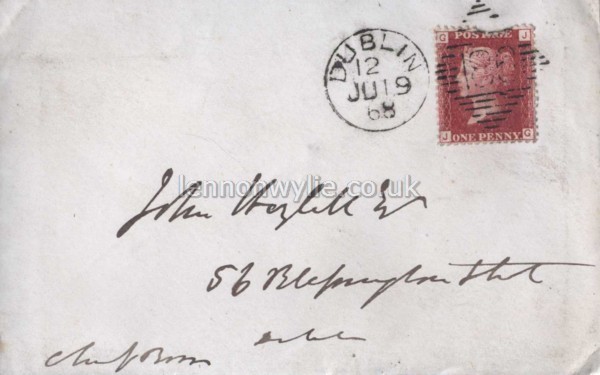 G POSTAGE J
DUBLIN
12
JU 19
68
J ONE PENNY G
lennonwylie.co.uk
John Hazlett Esq
56 Blessington Street